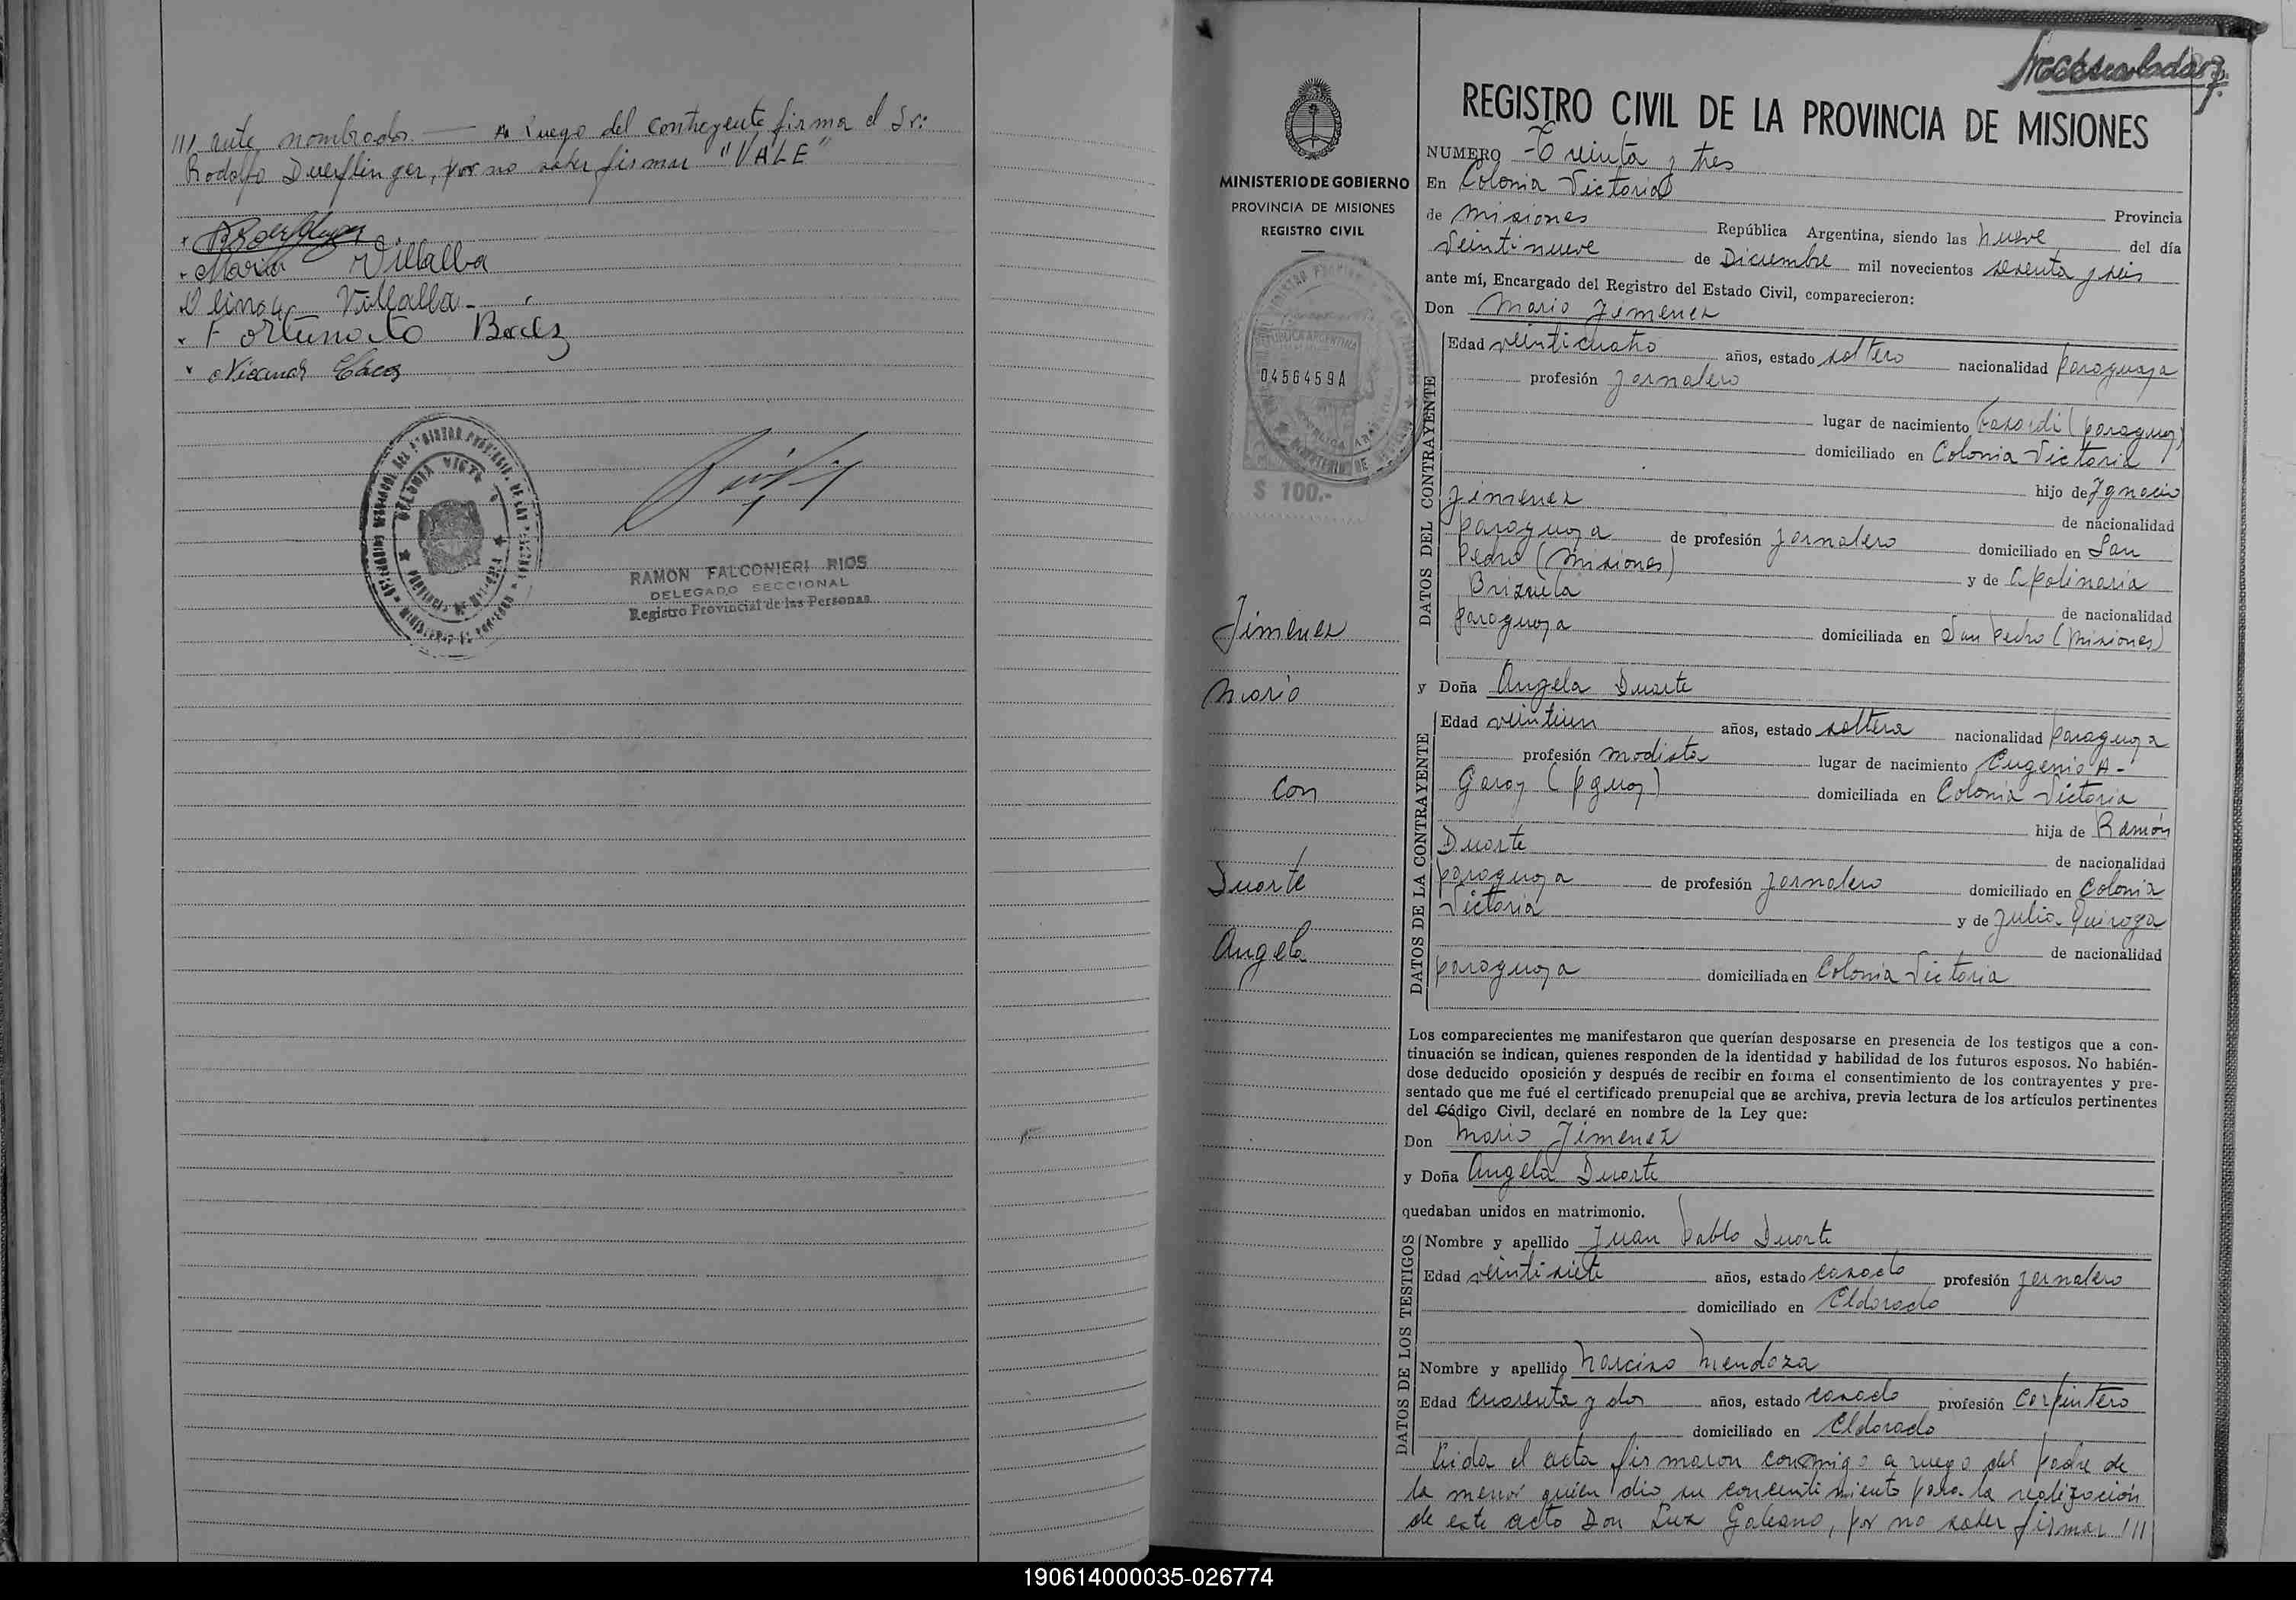 /// ante nombrados.— A ruego del contrayente firma el Sr:
Rodolfo Duerflinger, por no saber firmar "VALE"
Maria Villalba
Villalba
Fortunato Baez
COLONIA VICTORIA
PROVINCIA DE MISIONES
RAMON FALCONIERI RIOS
DELEGADO SECCIONAL
Registro Provincial de las Personas
MINISTERIO DE GOBIERNO
PROVINCIA DE MISIONES
REGISTRO CIVIL
REPUBLICA ARGENTINA
0456459A
$ 100.-
Jimenez
Mario
Con
Duarte
Angela
REGISTRO CIVIL DE LA PROVINCIA DE MISIONES
NUMERO Treinta y tres
En Colonia Victoria
Provincia
de Misiones República Argentina, siendo las nueve del día
Veintinueve de Diciembre mil novecientos sesenta y seis
ante mí, Encargado del Registro del Estado Civil, comparecieron:
Don Mario Jimenez
DATOS DEL CONTRAYENTE
Edad veinticuatro años, estado soltero nacionalidad paraguaya
profesión Jornalero
lugar de nacimiento (paraguay)
domiciliado en Colonia Victoria
hijo de Ignacio
Jimenez de nacionalidad
paraguaya de profesión Jornalero domiciliado en San
Pedro (Misiones) y de Apolinaria
Brizuela de nacionalidad
paraguaya domiciliada en San Pedro (Misiones)
y Doña Angela Duarte
DATOS DE LA CONTRAYENTE
Edad veintiun años, estado soltera nacionalidad paraguaya
profesión modista lugar de nacimiento Eugenio A-
Garay (pguay) domiciliada en Colonia Victoria
hija de Ramón
Duarte de nacionalidad
paraguaya de profesión Jornalero domiciliado en Colonia
Victoria y de Julia Quiroga
de nacionalidad
paraguaya domiciliada en Colonia Victoria
Los comparecientes me manifestaron que querían desposarse en presencia de los testigos que a con-
tinuación se indican, quienes responden de la identidad y habilidad de los futuros esposos. No habién-
dose deducido oposición y después de recibir en forma el consentimiento de los contrayentes y pre-
sentado que me fué el certificado prenupcial que se archiva, previa lectura de los artículos pertinentes
del Código Civil, declaré en nombre de la Ley que:
Don Mario Jimenez
y Doña Angela Duarte
quedaban unidos en matrimonio.
DATOS DE LOS TESTIGOS
Nombre y apellido Juan Pablo Duarte
Edad veintisiete años, estado casado profesión jornalero
domiciliado en Eldorado
Nombre y apellido Narciso Mendoza
Edad cuarenta y dos años, estado casado profesión Carpintero
domiciliado en Eldorado
Leida el acta firmaron conmigo a ruego del padre de
la menor quien dio su concentimiento para la realización
de este acto Don Galeano, por no saber firmar ///
190614000035-026774